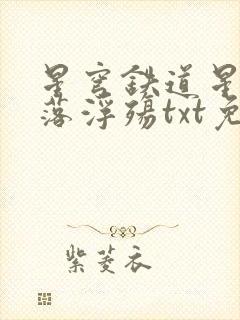 星穹铁道星
落浮殇txt免
紫菱衣